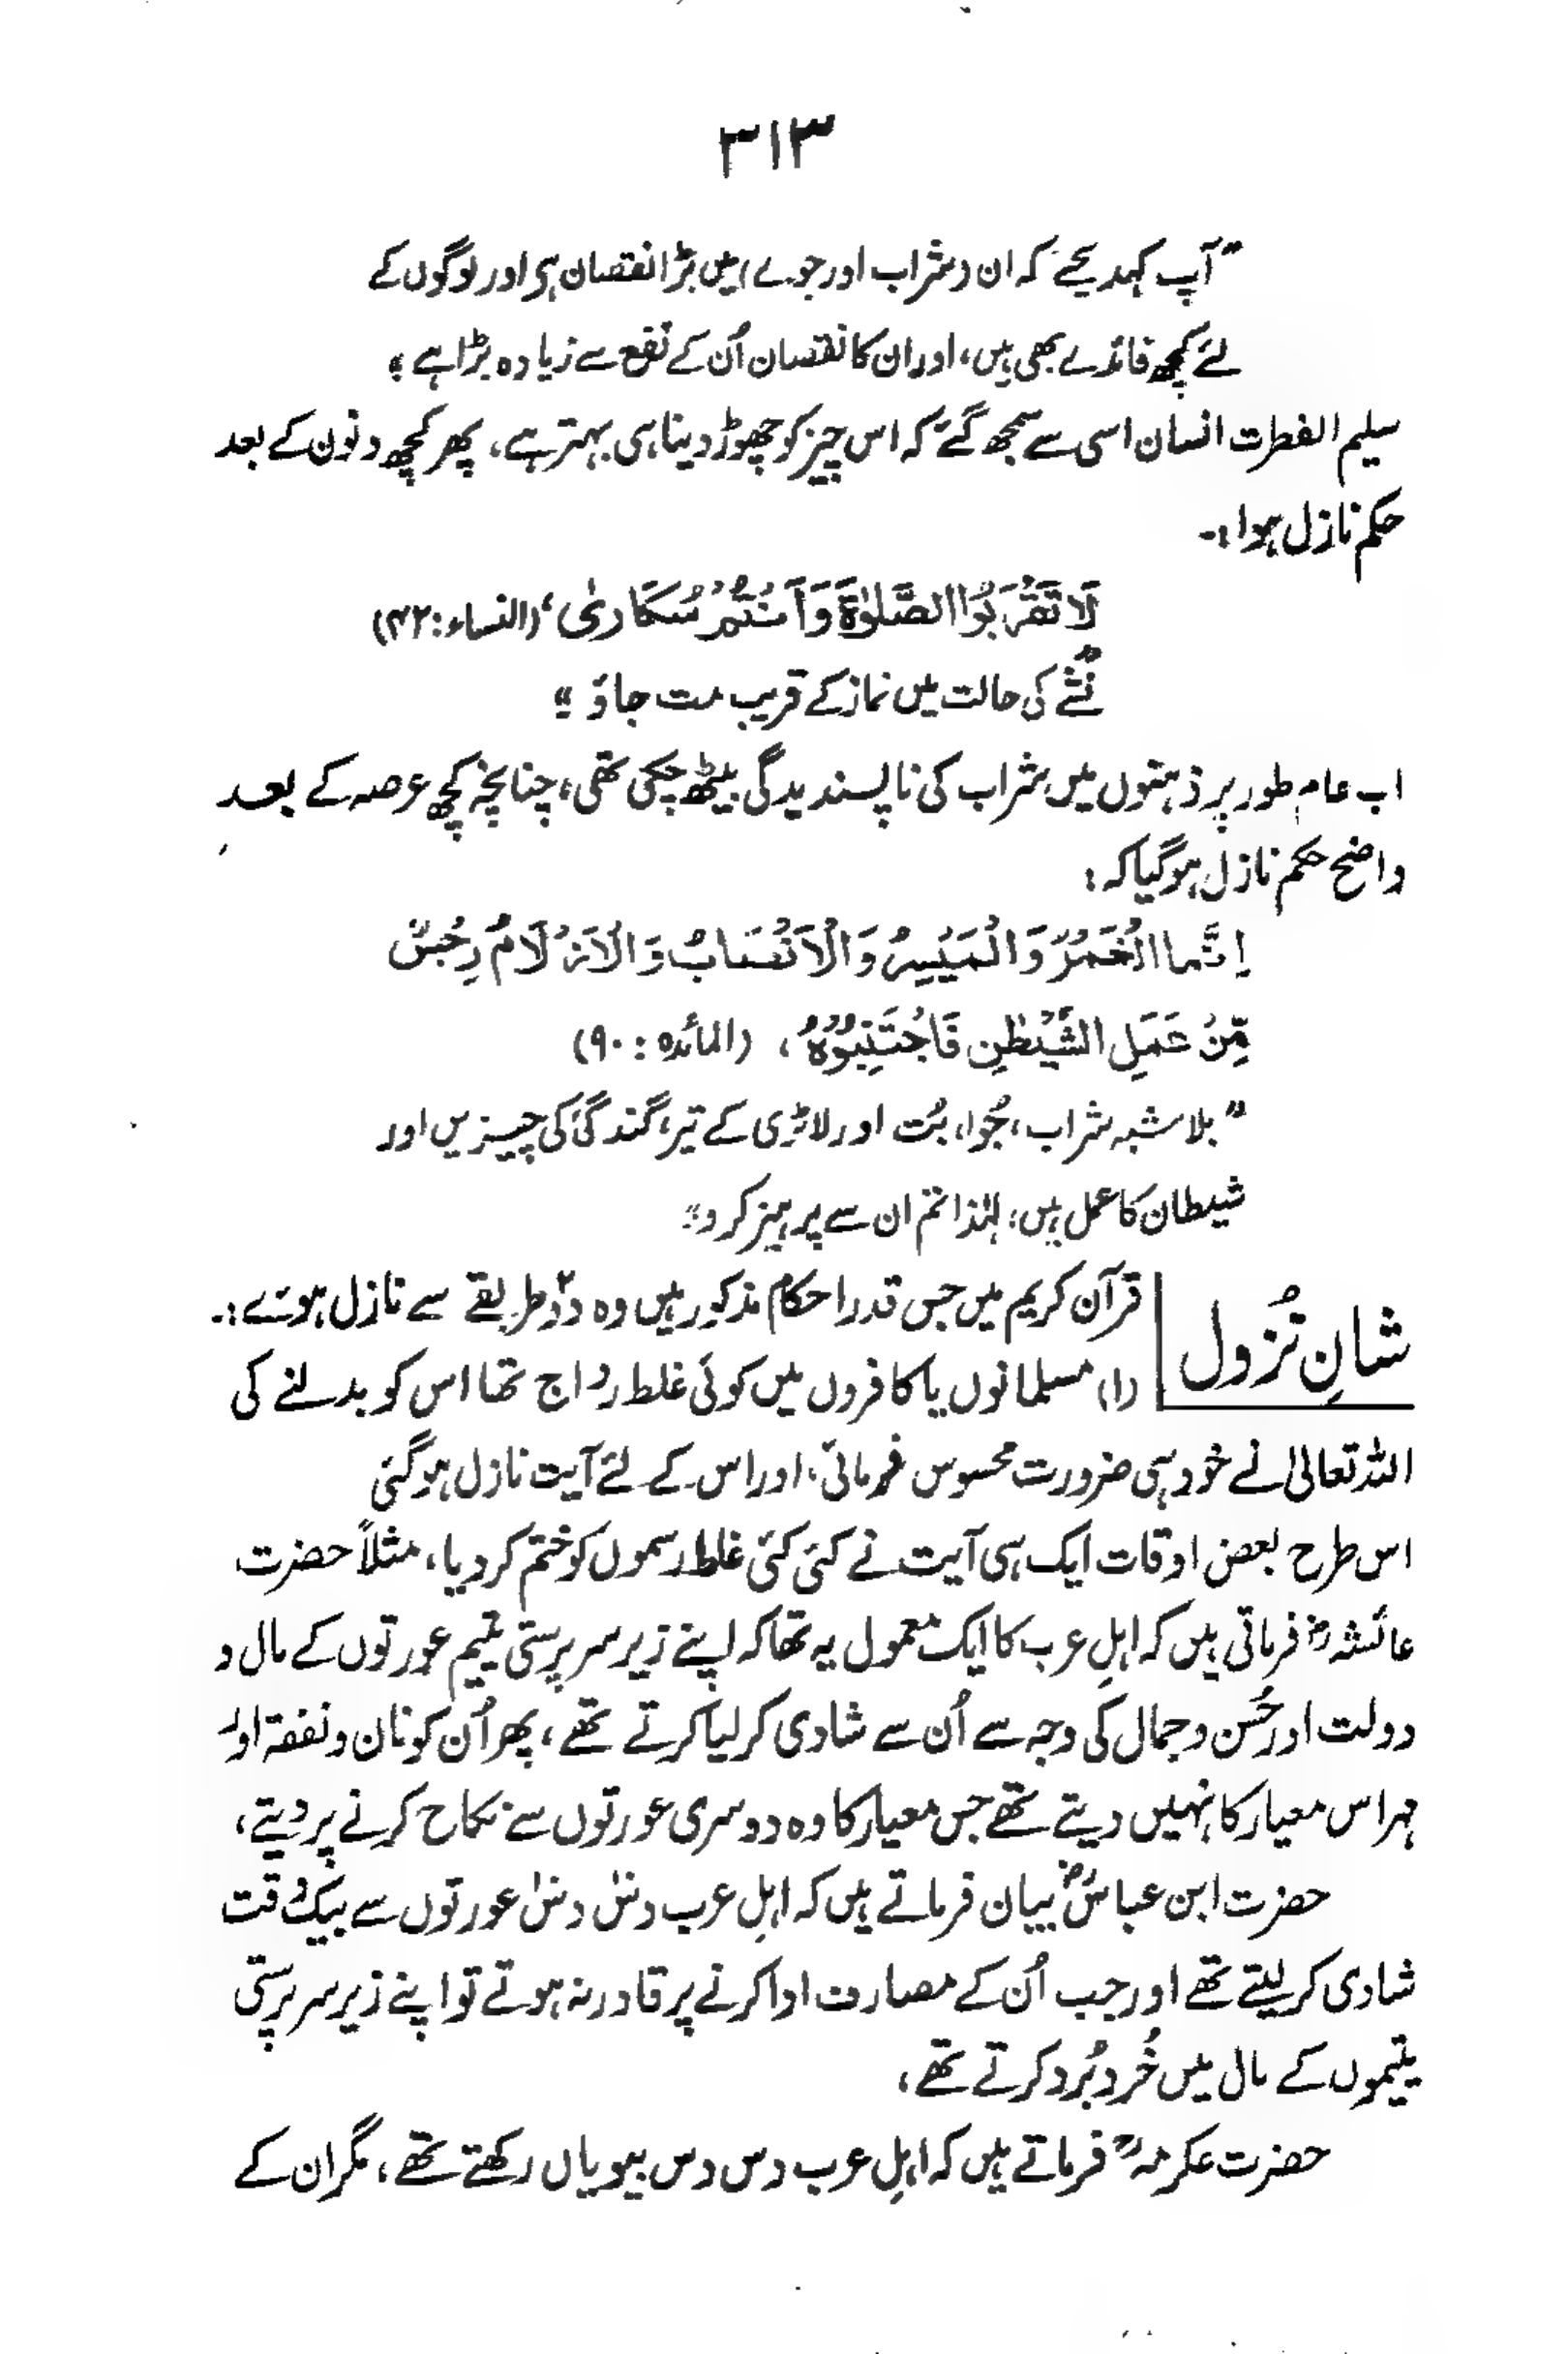 ۳۱۳
"آپ کہدیجے کہ ان (شراب اور جوے) میں بڑا نقصان ہی اور لوگوں کے
لئے کچھ فائدے بھی ہیں، اور ان کا نقصان اُن کے نفع سے زیادہ بڑا ہے"
سلیم الفطرت انسان اسی سے سمجھ گئے کہ اس چیز کو چھوڑ دینا ہی بہتر ہے، پھر کچھ دنوں کے بعد
حکم نازل ہوا:-
لَا تَقْرَبُوا الصَّلوٰةَ وَاَنْتُمْ سُكَارىٰ، (النساء: ۴۳)
"نشے کی حالت میں نماز کے قریب مت جاؤ"
اب عام طور پر ذہنوں میں شراب کی ناپسندیدگی بیٹھ چکی تھی، چنانچہ کچھ عرصہ کے بعد
واضح حکم نازل ہو گیا کہ:
اِنَّمَا الْخَمْرُ وَالْمَيْسِرُ وَالْاَنْصَابُ وَالْاَزْلَامُ رِجْسٌ
مِّنْ عَمَلِ الشَّيْطٰنِ فَاجْتَنِبُوْهُ، (المائدہ: ۹۰)
"بلاشبہ شراب، جُوا، بُت اور لاٹری کے تیر، گندگی کی چیزیں اور
شیطان کا عمل ہیں، لہٰذا تم ان سے پرہیز کرو"
شانِ نُزول
قرآن کریم میں جس قدر احکام مذکور ہیں وہ دو۲ طریقے سے نازل ہوئے:-
(۱) مسلمانوں یا کافروں میں کوئی غلط رواج تھا اس کو بدلنے کی
اللہ تعالیٰ نے خود ہی ضرورت محسوس فرمائی، اور اس کے لئے آیت نازل ہو گئی
اس طرح بعض اوقات ایک ہی آیت نے کئی کئی غلط رسموں کو ختم کر دیا، مثلاً حضرت
عائشہؓ فرماتی ہیں کہ اہلِ عرب کا ایک معمول یہ تھا کہ اپنے زیر سرپرستی یتیم عورتوں کے مال و
دولت اور حُسن و جمال کی وجہ سے اُن سے شادی کر لیا کرتے تھے، پھر اُن کو نان و نفقۃ اور
مہر اس معیار کا نہیں دیتے تھے جس معیار کا وہ دوسری عورتوں سے نکاح کرنے پر دیتے،
حضرت ابن عباسؓ بیان فرماتے ہیں کہ اہلِ عرب دس دس عورتوں سے بیک وقت
شادی کر لیتے تھے اور جب اُن کے مصارف ادا کرنے پر قادر نہ ہوتے تو اپنے زیر سرپرستی
یتیموں کے مال میں خُرد بُرد کرتے تھے،
حضرت عکرمہؒ فرماتے ہیں کہ اہلِ عرب دس دس بیویاں رکھتے تھے، مگر ان کے